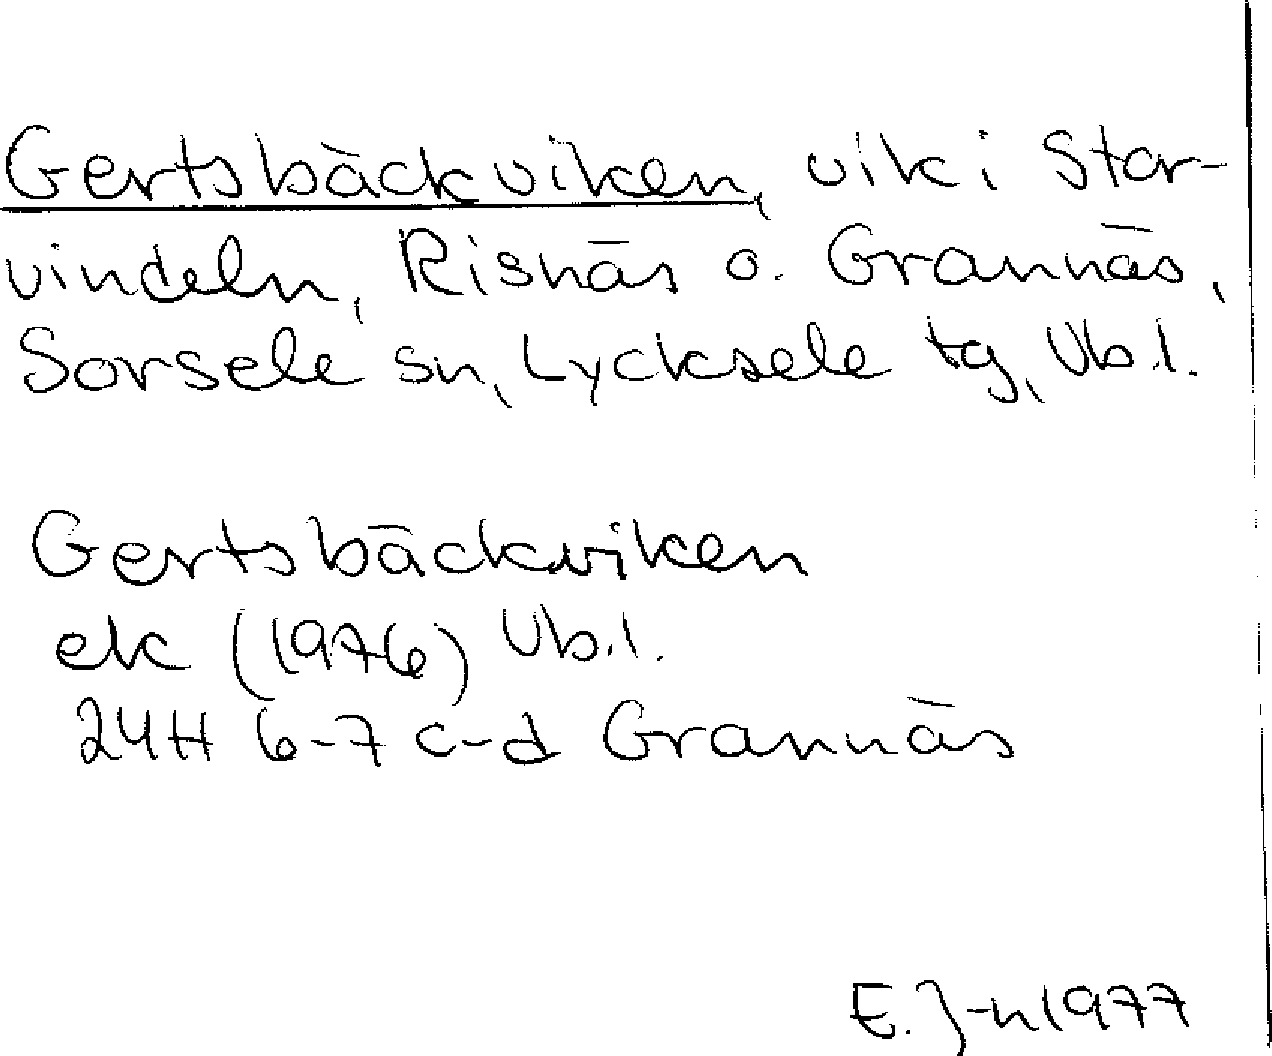 Gertsbäckviken, vik i Stor-
vindeln, Risnäs o. Grannäs,
Sorsele sn, Lycksele tg, Vb.l.
Gertsbäckviken
ek (1976) Vb.l.
24H 6-7 c-d Grannäs
E. J-n 1977